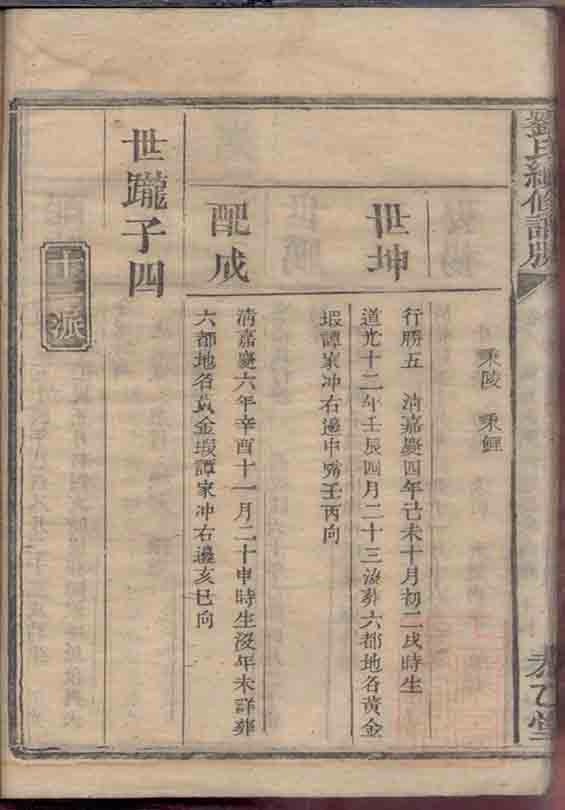 劉氏續修譜牒
泰乙堂
乘陵 乘鯉
世坤
行勝五 清嘉慶四年己未十月初二戌時生
道光十二年壬辰四月二十三沒葬六都地名黃金
塅譚家冲右邊中塝壬丙向
配成
清嘉慶六年辛酉十一月二十申時生沒年未詳葬
六都地名黃金塅譚家冲右邊亥巳向
世躘子四
十二派